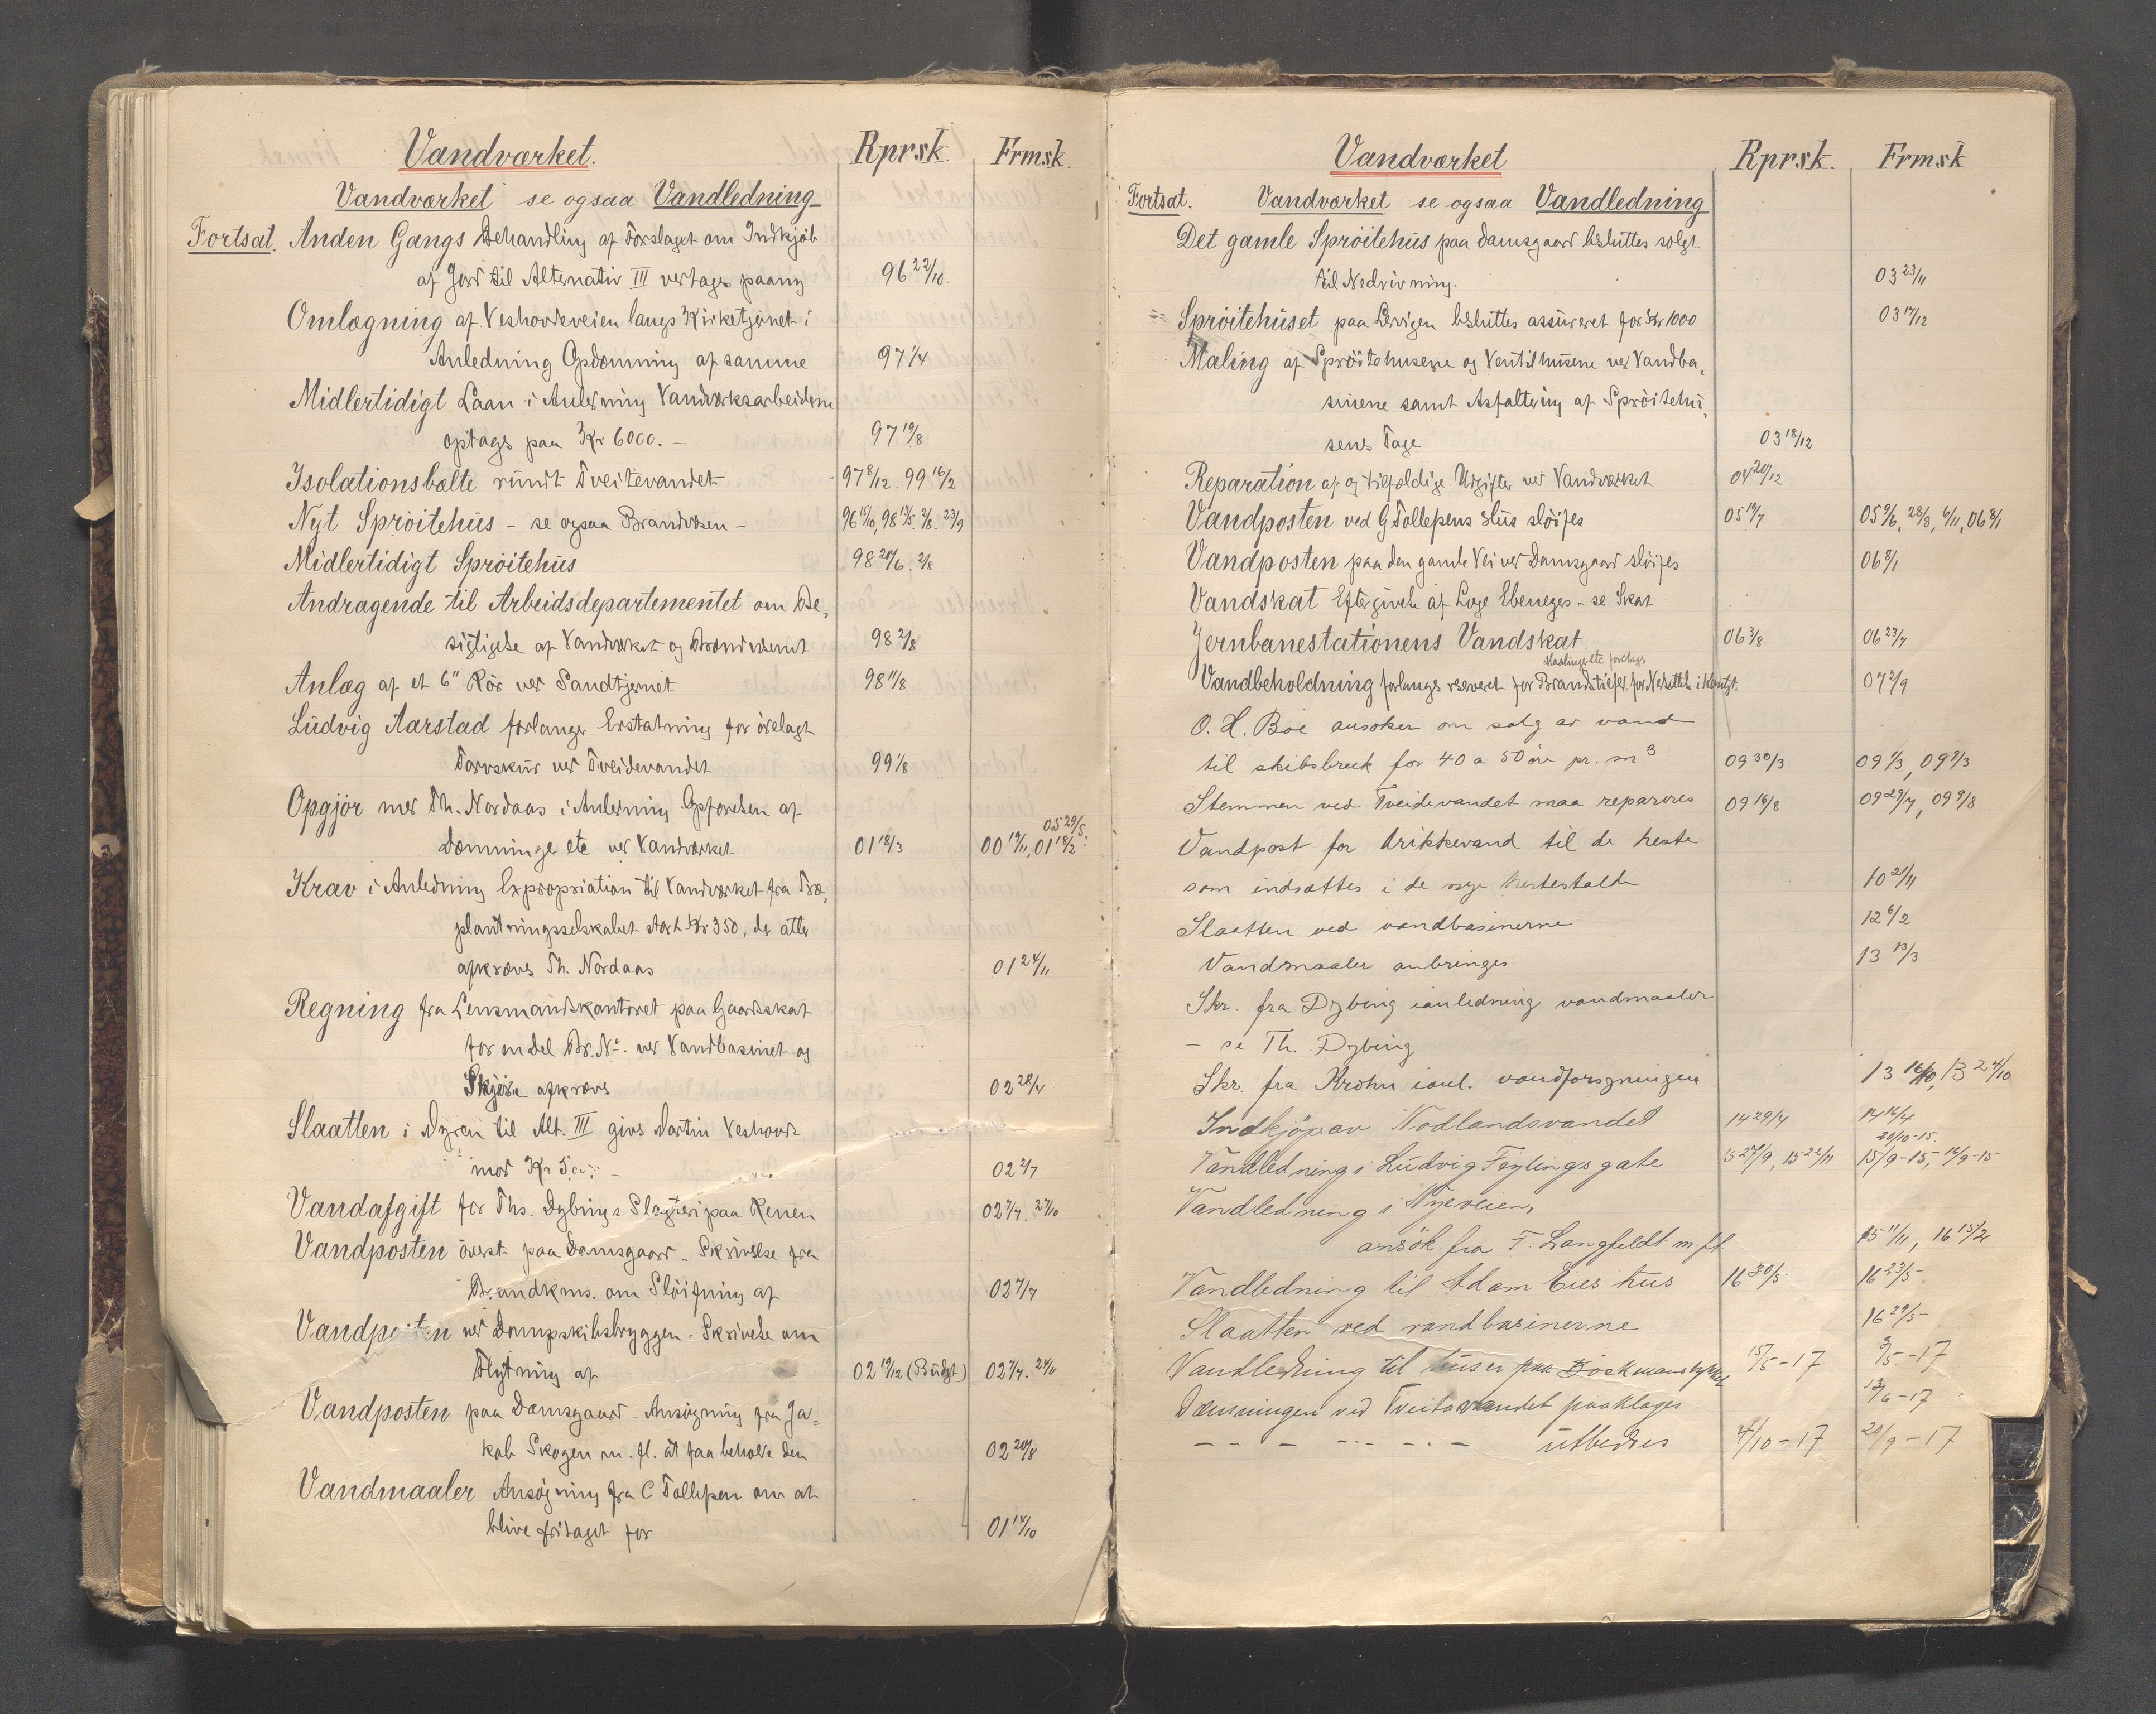 Vandværket. Rprsk. Frmsk.
Vandværket se ogsaa Vandledning
Fortsat. Anden Gangs Behandling af Forslaget om Indkjøb
af Jord til Alternativ III vertages paany 96 22/10.
Omlægning af Veshovdeveien langs Kirketjernet i
Anledning Opdæmning af samme 97 1/4
Midlertidigt Laan i Anledning Vandværksarbeiderne
optages paa Kr 6000. — 97 19/8
Isolationsbælte rundt Tveitevandet 97 8/12. 99 16/2
Nyt Sprøitehus - se ogsaa Brandvæsen - 96 15/10, 98 13/5. 2/8. 23/9
Midlertidigt Sprøitehus 98 20/6. 2/8
Andragende til Arbeidsdepartementet om Be,
sigtigelse af Vandværket og Brandvæsenet 98 2/8
Anlæg af et 6" Rør ved Sandtjernet 98 11/8
Ludvig Aarstad forlanger Erstatning for ødelagt
Torvskur ved Tveidevandet 99 1/8
Opgjør med Th. Nordaas i Anledning Opførelsen af
05 29/5.
Dæmninger etc ved Vandværket 01 18/3 00 19/11, 01 18/2
Krav i Anledning Expropriation til Vandværket fra Træ,
plantningsselskabet stort Kr 350, der atter
afkræves Th. Nordaas 01 24/11
Regning fra Lensmandskontoret paa Gaardsskat
for en Del Br. No. ved Vandbasinet og
Skjøre afkræves 02 28/4
Slaatten i Myren til Alt. III gives Martin Veshovde
mod Kr 5 02 2/7
Vandafgift for Ths. Dybings Slagteri paa Renen 02 7/7. 27/10
Vandposten øverst paa Damsgaard - Skrivelse fra
Brandkms. om Sløifning af 02 7/7
Vandposten ved Dampskibsbryggen - Skrivelse om
Flytning af 02 19/12 (Budgt) 02 7/7. 24/11
Vandposten paa Damsgaard - Ansøgning fra Ja=
kob Skogen m. fl. at faa beholde den 02 20/8
Vandmaaler Ansøgning fra C Tollefsen om at
blive fritaget for 01 14/10
Vandværket Rprsk. Frmsk
Fortsat. Vandværket se ogsaa Vandledning
Det gamle Sprøitehus paa Damsgaard besluttes solgt
til Nedrivning. 03 23/11
Sprøitehuset paa Levigen besluttes assureret for Kr 1000 03 17/12
Maling af Sprøitehusene og Ventilhusene ved Vandba,
sinene samt Asfaltering af Sprøitehu,
senes Tage 03 18/12
Reparation af og tilfældige Udgifter ved Vandværket 04 20/12
Vandposten ved G Tollefsens Hus sløifes 05 19/7 05 9/6, 28/8, 6/11, 06 8/1
Vandposten paa den gamle Vei ved Damsgaard sløifes 06 8/1
Vandskat Eftergivelse af Loge Ebeneser - se Skat
Jernbanestationens Vandskat 06 3/8 06 23/7
Maalinger etc foretages
Vandbeholdning forlanges reserveret for Brandstilfæl. 07 2/9
O. H. Boe ansøker om salg av vand
til skibsbruk for 40 a 50 øre pr. m3 09 30/3 09 1/3, 09 9/3
Stemmen ved Tveidevandet maa repareres 09 16/8 09 29/7, 09 9/8
Vandpost for drikkevand til de heste
som indsættes i de nye hestestalde 10 21/11
Slaatten ved vandbasinerne 12 6/2
Vandmaaler anbringes 13 13/3
Skr. fra Dybing ianledning vandmaaler
- se Th. Dybing
Skr. fra Krohn ianl. vandforsyningen 13 16/10, 13 24/10
Indkjöp av Nodlandsvandet 14 29/4 14 16/4
20/10-15
Vandledning i Ludvig Feylings gate 15 27/9, 15 22/11 15/9-15, 16/9-15
Vandledning i Nyeveien,
ansök. fra T. Langfeldt m. fl 15 11/11, 16 15/2
Vandledning til Adam Eies hus 16 30/5 16 23/5
Slaatten ved vandbasinerne 16 29/5
Vandledning til huser paa 15/5-17 3/5-17
Dæmningen ved Tveitavandet paaklages 13/6-17
- " - - " - - " - utbedres 4/10-17 20/9-17